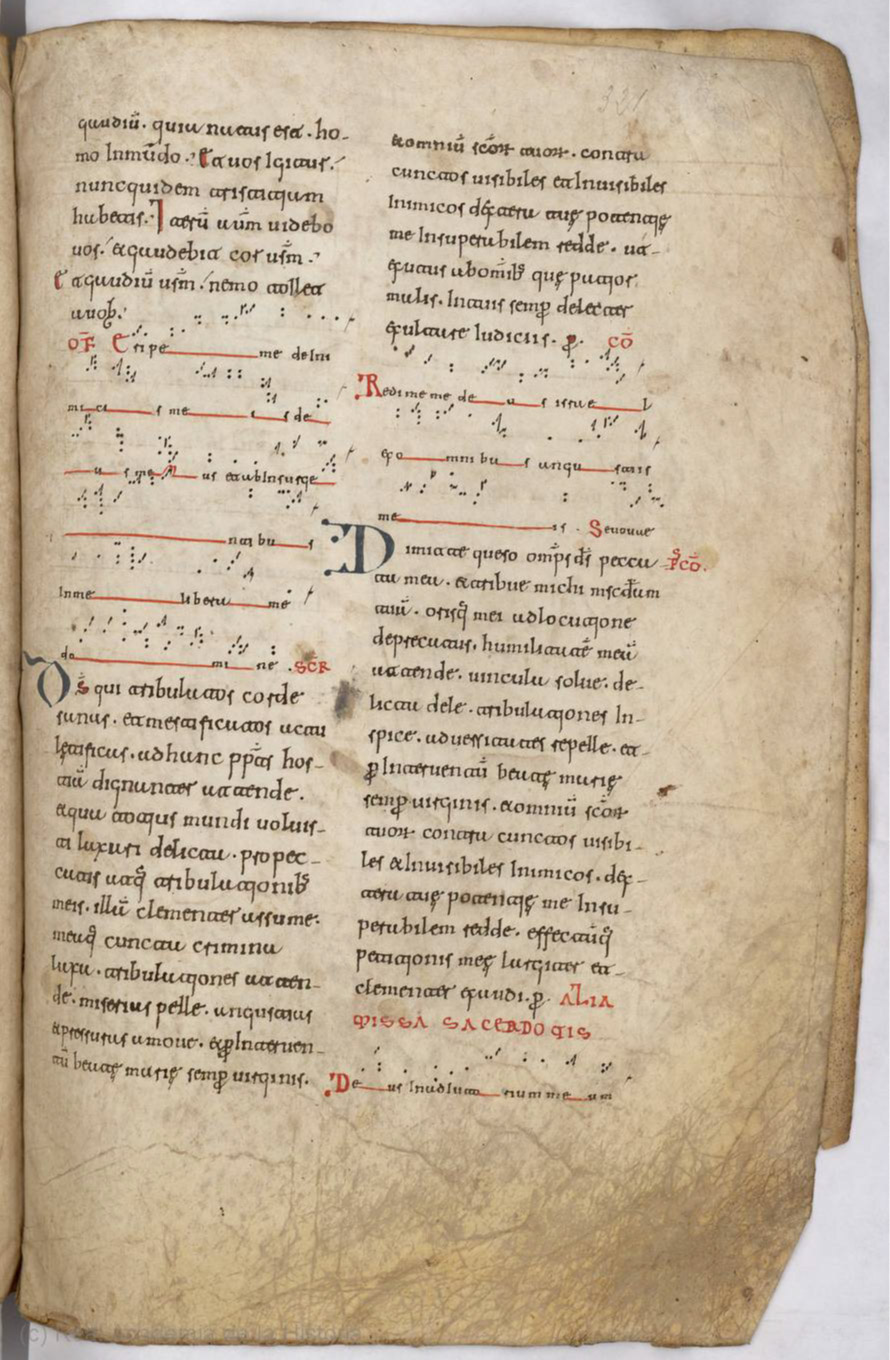 gaudiū. quia natus est. ho-
mo Inmūdo. Et uos Igitur.
nuncquidem tristitiam
habetis. Iterū aūm uidebo
uos. et gaudebit cor usm̄.
Et gaudiū usm̄. nemo tollet
a uob.
OF Eripe me de Ini
mi ci s me i s de
u s me us et ab Insurge
nti bu s
Inme libera me
do mi ne . SCR
Ds qui tribulatos corde
sanas. et mestificatos actu
letificas. ad hunc ppts hos-
tiā dignanter attende.
a qua totius mundi uoluis-
ti laxari delicta. pro pec-
catis atq̄ tribulationib;
meis. illā clementer assume.
meaq̄ cuncta crimina
laxa. tribulationes atten-
de. miserias pelle. angustias
et pressuras amoue. et ꝑInteruen-
tū beatę marię semꝑ uirginis.
et omniū scōr tuor. contra
cunctos uisibiles et Inuisibiles
Inimicos dext̄era tuę potentię
me Insuperabilem redde. ut
exutus ab omib; que putior
malis. Intuis semꝑ delecter
exultare Iudiciis. ꝑ. CŌ
Redime me de u s isrue l
ex o mni bu s angu stiis
me is . Seuouae
Dimitte queso omps ds pecca PSCŌ.
ta mea. et tribue michi miscdiam
tuā. orisq̄ mei adlocutione
deprecatus. humilitatē meā
attende. uincula solue. de-
licta dele. tribulationes In-
spice. aduersitates repelle. et
ꝑInteruentū beatę marię
semꝑ uirginis. et omniū scōr
tuor contra cunctos uisibi-
les et Inuisibiles Inimicos. dex-
tera tuę potentię me Insu-
perabilem redde. effectūq̄
petitionis meę largiter et
clementer exaudi. ꝑ. ALIA
MISSA SACERDOTIS
De us Inadiuto rium me um